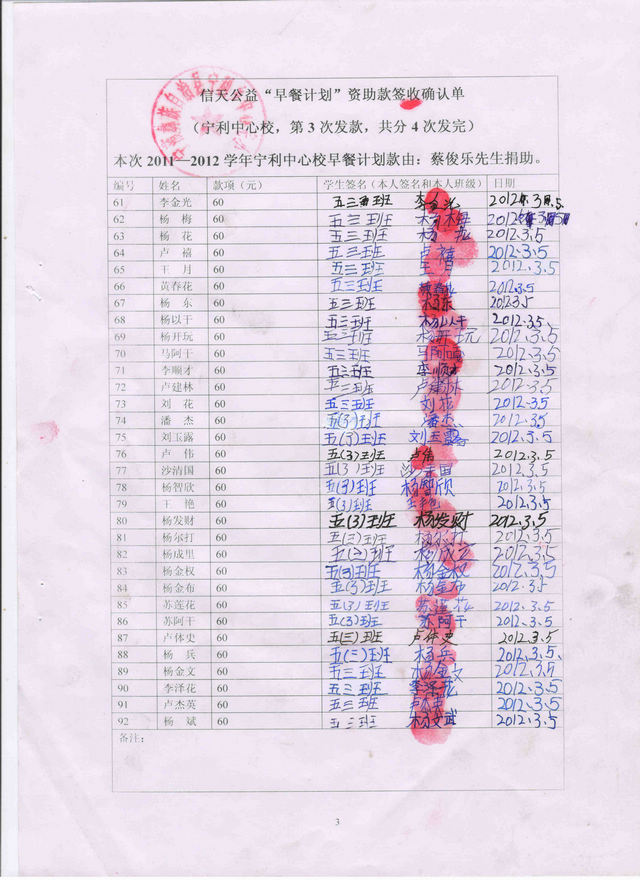 信天公益“早餐计划”资助款签收确认单
(宁利中心校，第3次发款，共分4次发完)
本次2011—2012学年宁利中心校早餐计划款由：蔡俊乐先生捐助。
编号 姓名 款项（元） 学生签名（本人签名和本人班级） 日期
61 李金光 60 五三班 李金光 2012.3.5
62 杨 梅 60 五三班 杨梅 2012.3.5
63 杨 花 60 五三班 杨花 2012.3.5
64 卢 禧 60 五三班 卢禧 2012.3.5
65 王 月 60 五三班 王月 2012.3.5
66 黄春花 60 五三班 2012.3.5
67 杨 东 60 五三班 杨东 2012.3.5
68 杨以干 60 五三班 2012.3.5
69 杨开玩 60 五三班 杨开玩 2012.3.5
70 马阿干 60 五三班 2012.3.5
71 李顺才 60 五三班 李顺才 2012.3.5
72 卢建林 60 五三班 卢建林 2012.3.5
73 刘 花 60 五三班 刘花 2012.3.5
74 潘 杰 60 五(3)班 潘杰 2012.3.5
75 刘玉露 60 五(3)班 刘玉露 2012.3.5
76 卢 伟 60 五(3)班 卢伟 2012.3.5
77 沙清国 60 五(3)班 2012.3.5
78 杨智欣 60 五(3)班 杨智欣 2012.3.5
79 王 艳 60 五(3)班 王艳 2012.3.5
80 杨发财 60 五(3)班 杨发财 2012.3.5
81 杨尔打 60 五(三)班 杨尔打 2012.3.5
82 杨成里 60 五(三)班 2012.3.5
83 杨金权 60 五(3)班 杨金权 2012.3.5
84 杨金布 60 五(3)班 杨金布 2012.3.5
85 苏莲花 60 五(3)班 苏莲花 2012.3.5
86 苏阿干 60 五(3)班 苏阿干 2012.3.5
87 卢体史 60 五(三)班 卢体史 2012.3.5
88 杨 兵 60 五(三)班 杨兵 2012.3.5
89 杨金文 60 五三班 杨金文 2012.3.5
90 李泽花 60 五三班 李泽花 2012.3.5
91 卢杰英 60 五三班 2012.3.5
92 杨 斌 60 五三班 杨文武 2012.3.5
备注：
3